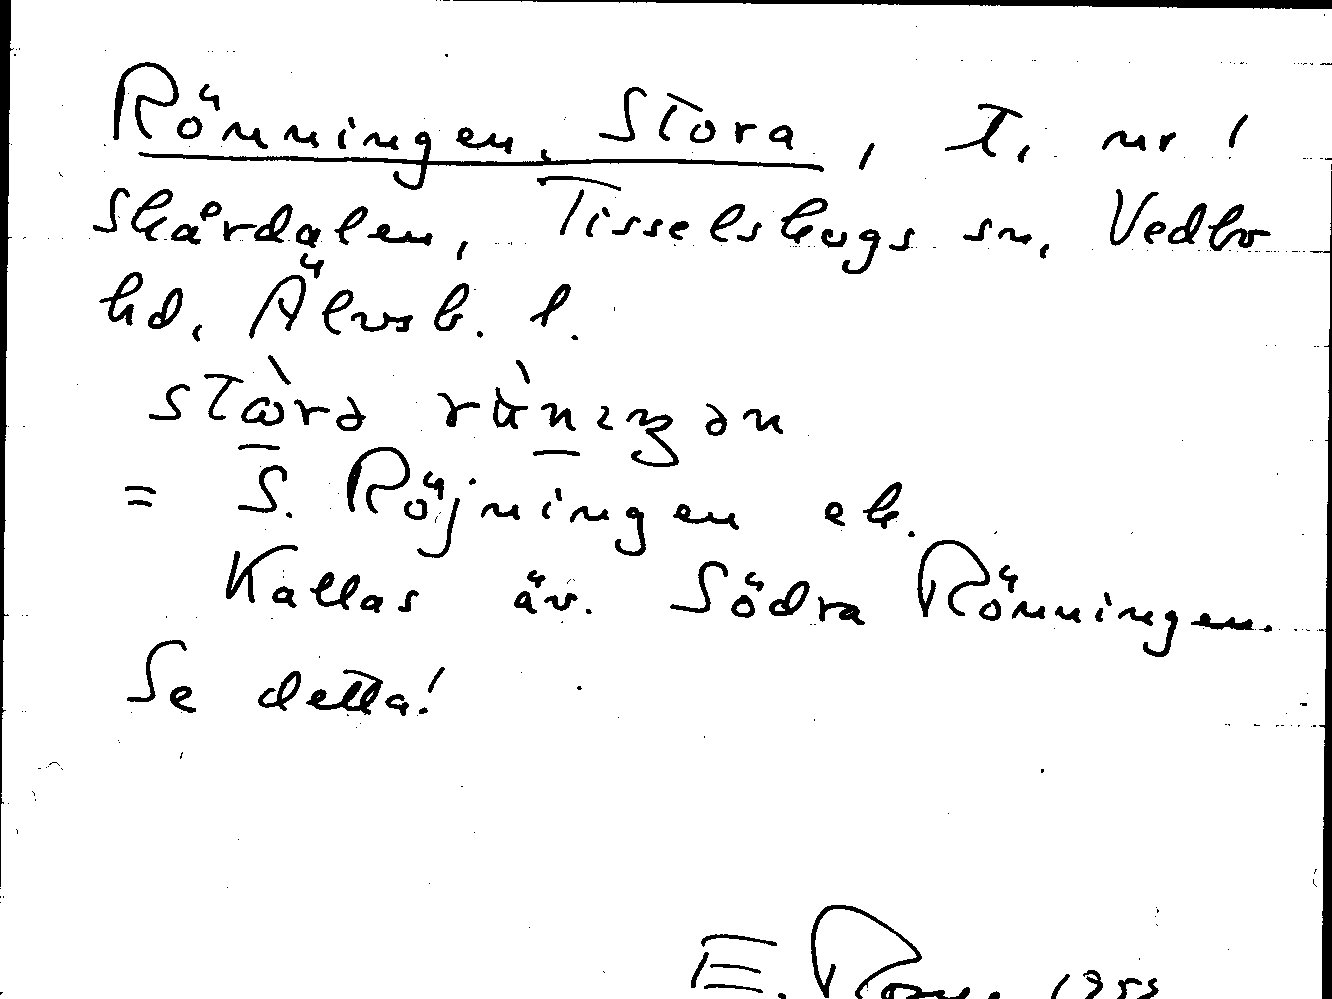 Rönningen, Stora, T, nr 1
Skårdalen, Tisselskogs sn, Vedbo
hd, Älvsb. l.
= S. Röjningen ek.
Kallas äv. Södra Rönningen.
Se detta!
E.